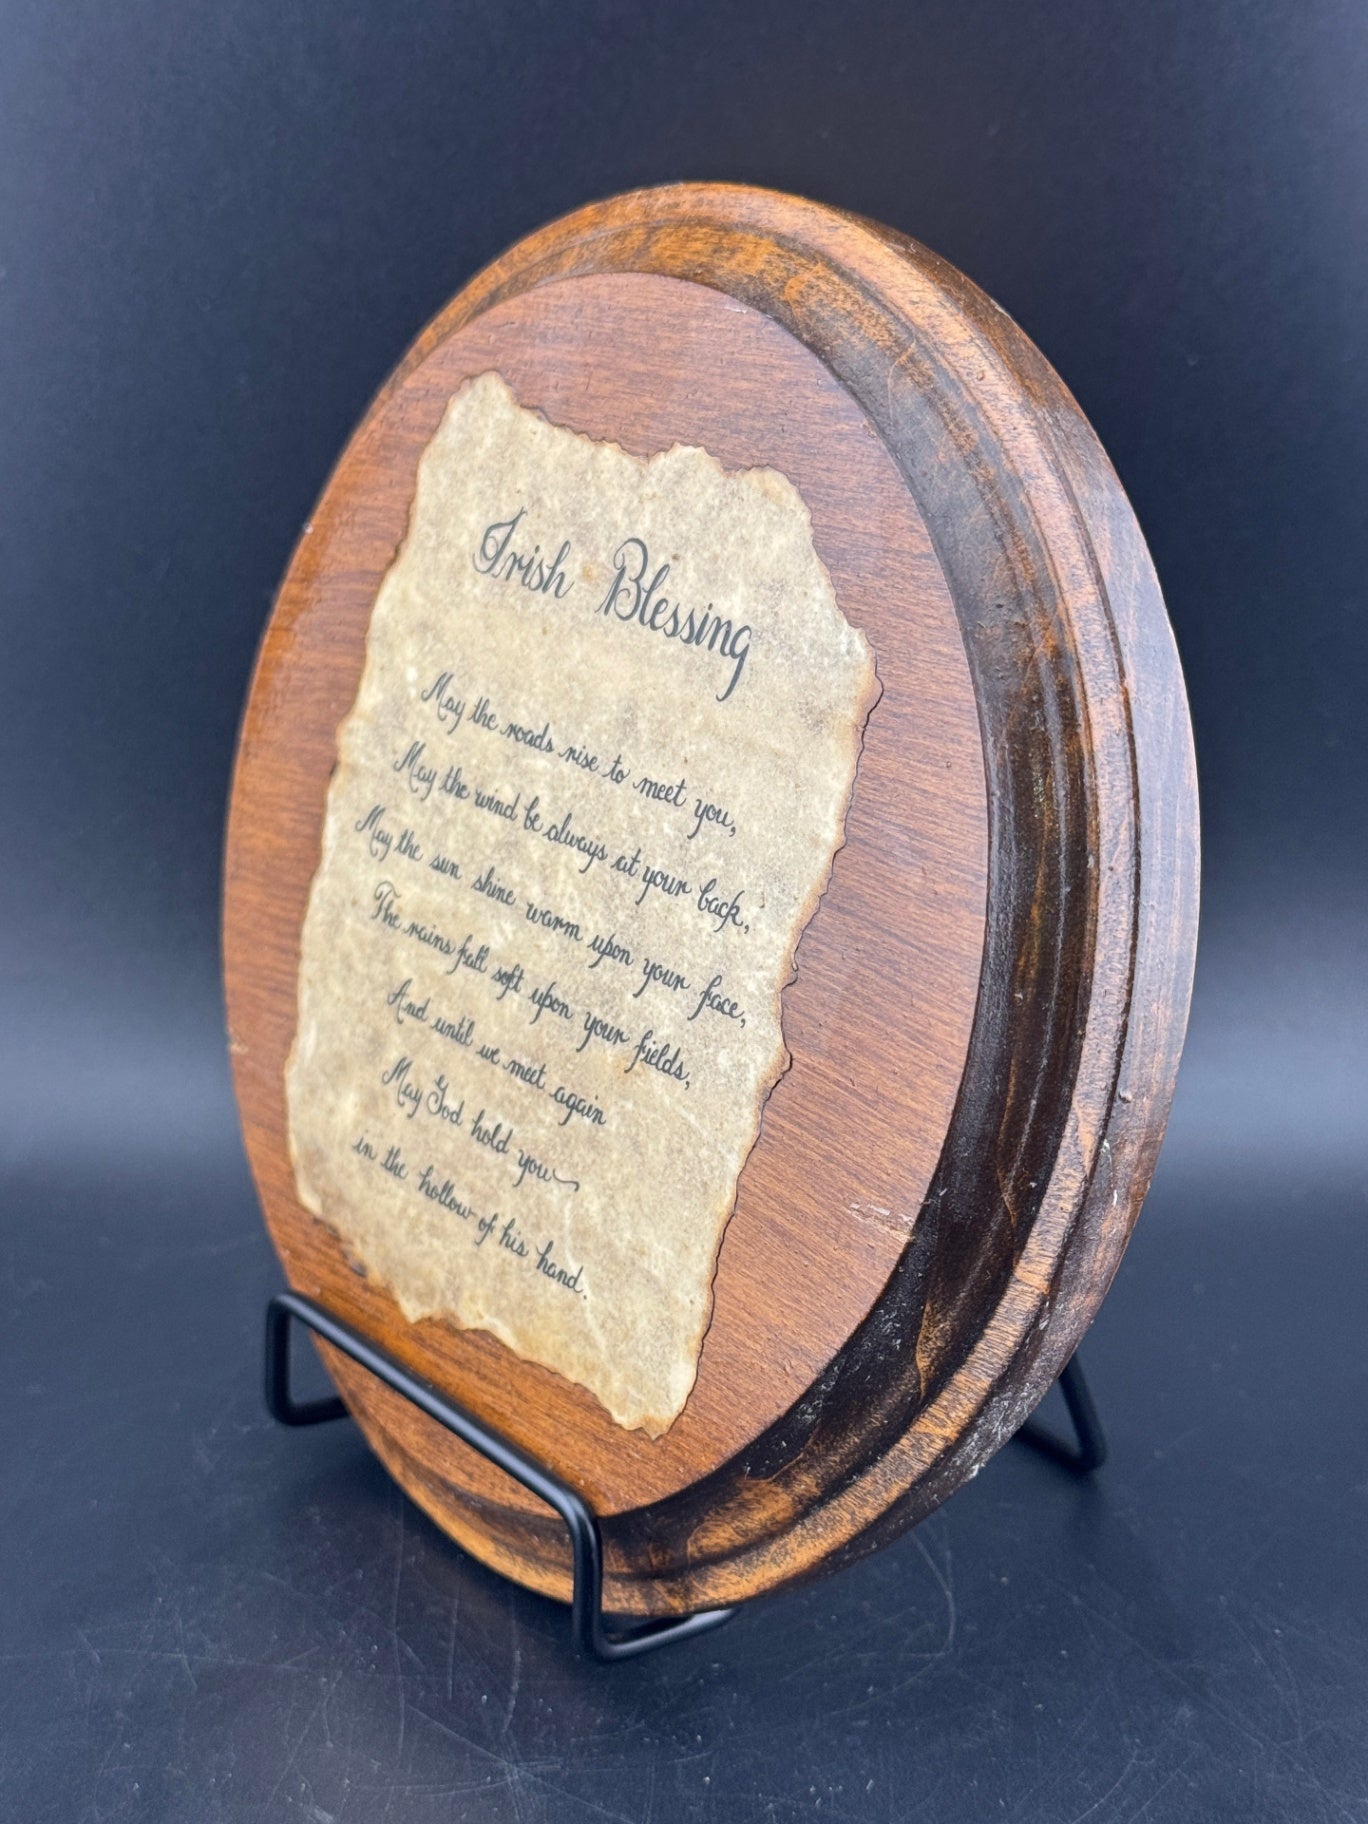 Irish Blessing
May the roads rise to meet you,
May the wind be always at your back,
May the sun shine warm upon your face,
The rains fall soft upon your fields,
And until we meet again
May God hold you
in the hollow of his hand.